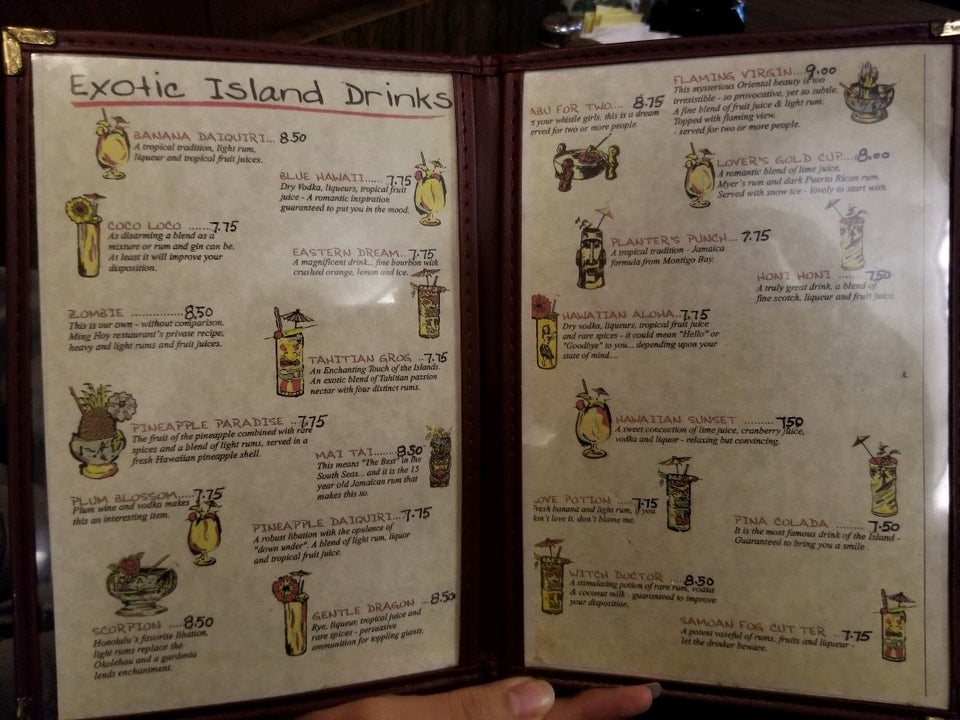 Exotic Island Drinks
BANANA DAIQUIRI... 8.50
A tropical tradition, light rum,
liqueur and tropical fruit juices.
BLUE HAWAII...... 7.75
Dry Vodka, liqueurs, tropical fruit
juice - A romantic inspiration
guaranteed to put you in the mood.
COCO LOCO .......7.75
As disarming a blend as a
mixture or rum and gin can be.
At least it will improve your
disposition.
EASTERN DREAM...7.75
A magnificent drink... fine bourbon with
crushed orange, lemon and ice.
ZOMBIE ...............8.50
This is our own - without comparison.
Ming Hoy restaurant's private recipe,
heavy and light rums and fruit juices.
TAHITIAN GROG ..7.75
An Enchanting Touch of the Islands.
An exotic blend of Tahitian passion
nectar with four distinct rums.
PINEAPPLE PARADISE ..7.75
The fruit of the pineapple combined with rare
spices and a blend of light rums, served in a
fresh Hawaiian pineapple shell.
MAI TAI.......8.50
This means "The Best" in the
South Seas... and it is the 15
year old Jamaican rum that
makes this so.
PLUM BLOSSOM....7.75
Plum wine and vodka makes
this an interesting item.
PINEAPPLE DAIQUIRI...7.75
A robust libation with the opulence of
"down under". A blend of light rum, liquor
and tropical fruit juice.
SCORPION ....8.50
Honolulu's favorite libation,
light rums replace the
Okolehau and a gardenia
lends enchantment.
GENTLE DRAGON ...8.50
Rye, liqueur, tropical juice and
rare spices - persuasive
ammunition for toppling giants.
ABU FOR TWO.... 8.75
your whistle girls, this is a dream
erved for two or more people.
FLAMING VIRGIN...9.00
This mysterious Oriental beauty is too
irresistible - so provocative, yet so subtle.
A fine blend of fruit juice & light rum.
Topped with flaming view.
- served for two or more people.
LOVER'S GOLD CUP...8.00
A romantic blend of lime juice,
Myer's rum and dark Puerto Rican rum.
Served with snow ice - lovely to start with.
PLANTER'S PUNCH... 7.75
A tropical tradition - Jamaica
formula from Montigo Bay.
HONI HONI ......7.50
A truly great drink, a blend of
fine scotch, liqueur and fruit juice.
HAWAIIAN ALOHA..7.75
Dry vodka, liqueurs, tropical fruit juice
and rare spices - it could mean "Hello" or
"Goodbye" to you... depending upon your
state of mind....
HAWAIIAN SUNSET ..........7.50
A sweet concoction of lime juice, cranberry juice,
vodka and liquor - relaxing but convincing.
LOVE POTION .....7.75
Fresh banana and light rum, if you
don't love it, don't blame me.
PINA COLADA ......... 7.50
It is the most famous drink of the Island -
Guaranteed to bring you a smile .
WITCH DOCTOR ... 8.50
A stimulating potion of rare rum, vodka
& coconut milk - guaranteed to improve
your disposition.
SAMOAN FOG CUT TER ..7.75
A potent vaseful of rums, fruits and liqueur -
let the drinker beware.